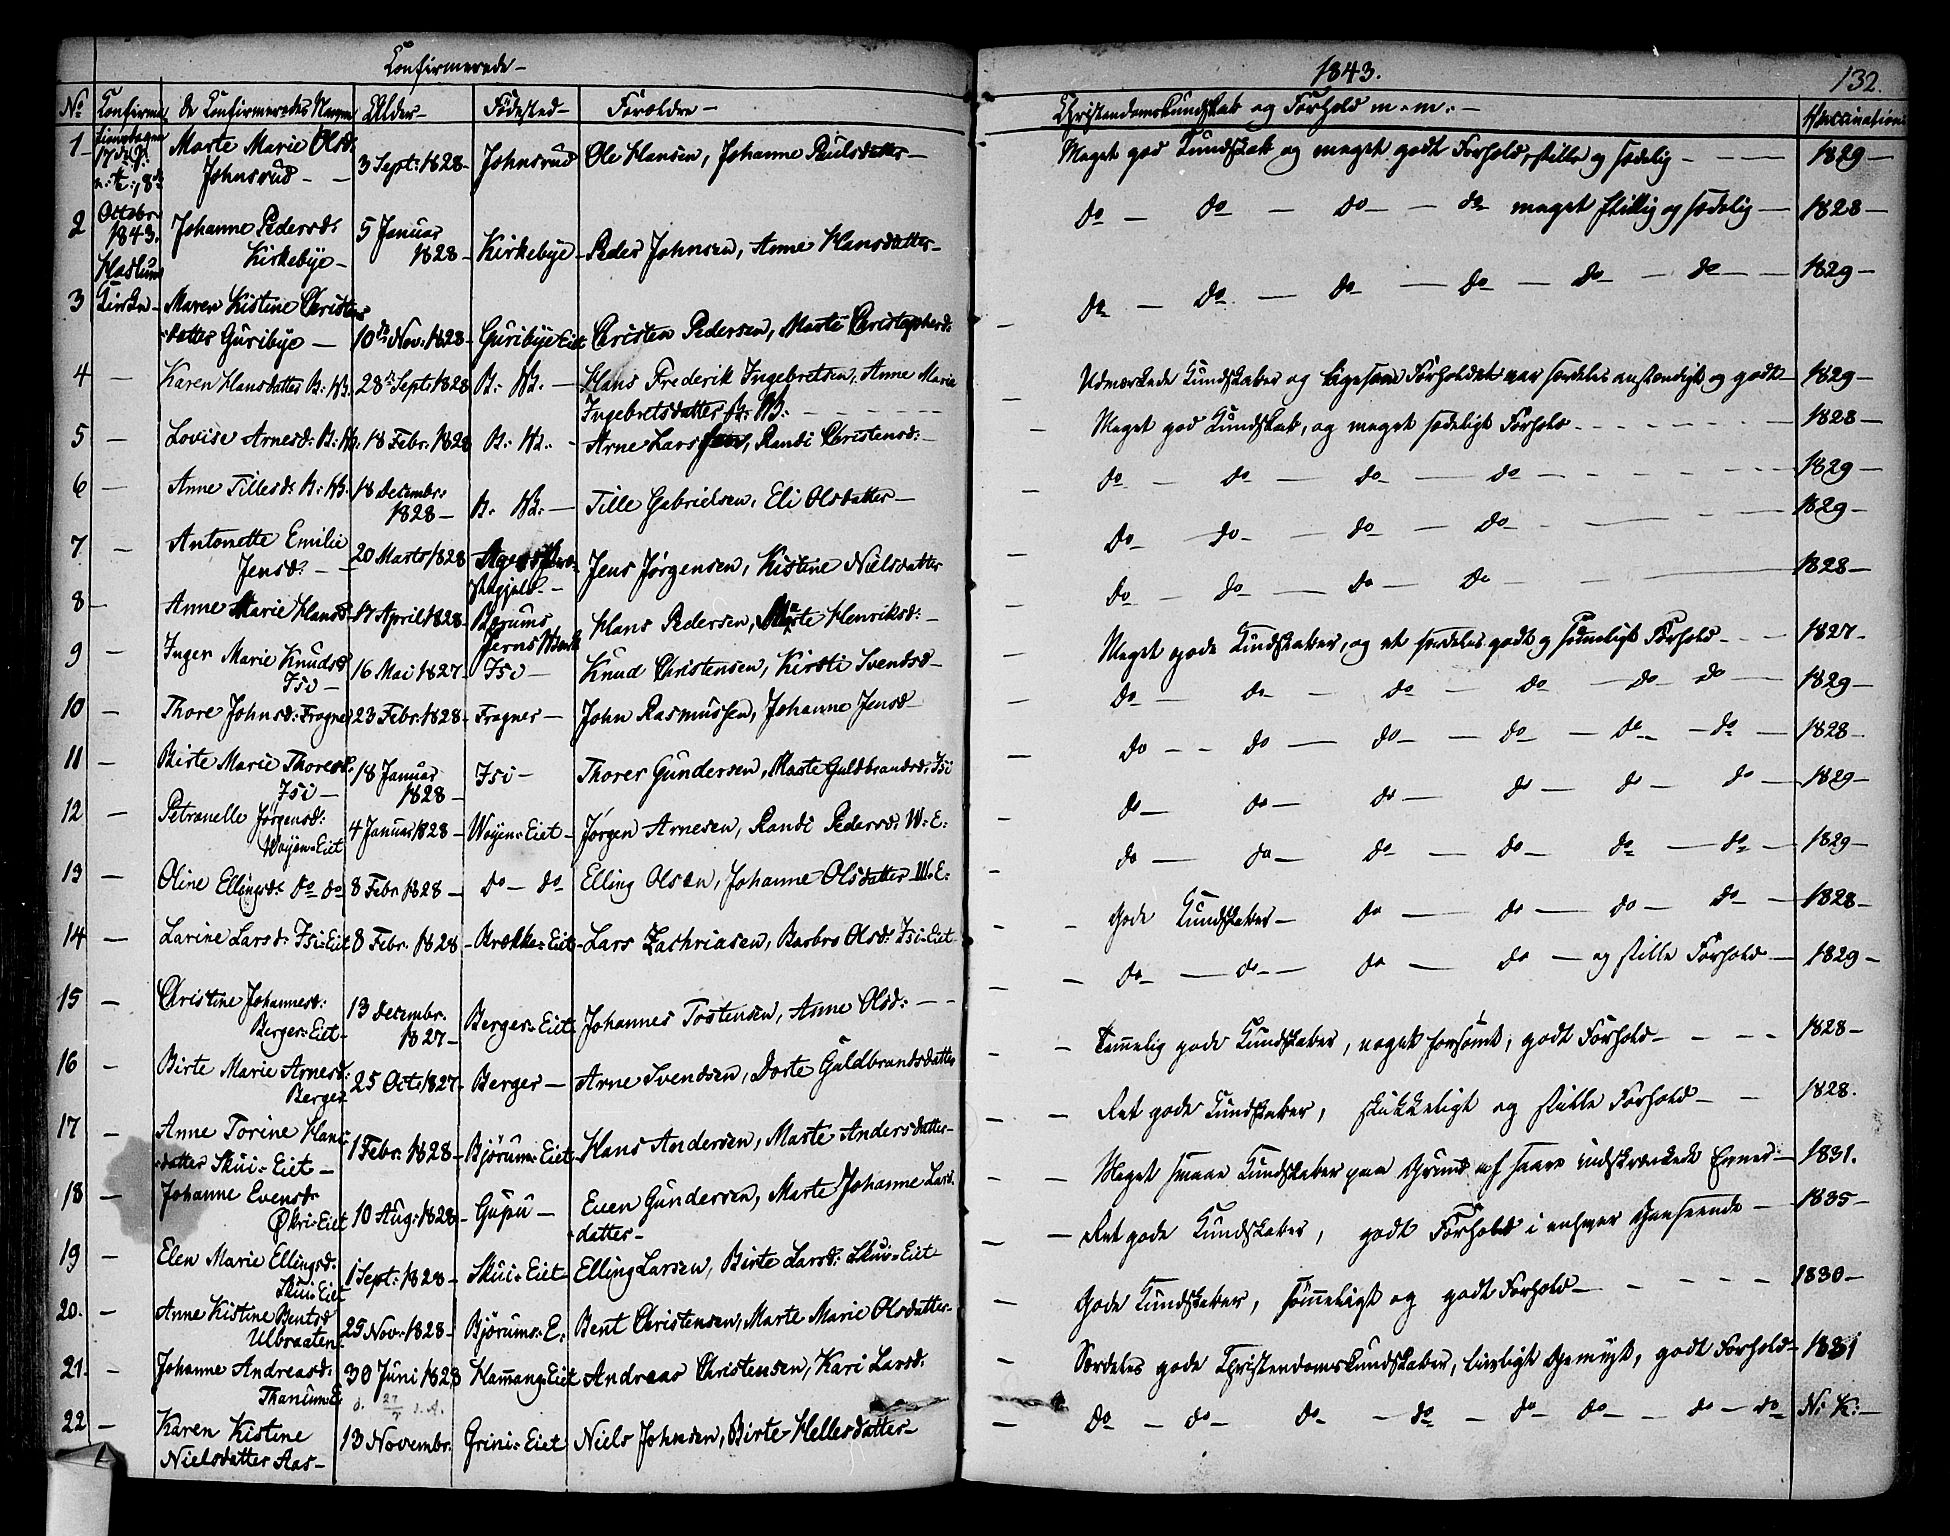 Confirmerede -
No Confirma, de Confirmeredes Navne Alder - Fødested - Forældre -
1 - 17 d. 8de Marte Marie Olsd: 3 Sept: 1828 - Johnsrud Ole Hansen, Johanne Paulsdatter -
Johnsrud -
2 Octobr. 1843. Johanne Pedersd: 5 Januar Kirkebye - Peder Johnsen, Anne Hansdatter -
Haslum Kirkebye - 1828 -
3 Kirken - Maren Kistine Christens
datter Guribye - 10de Nov: 1828 - Guribye Eiet Christen Pedersen, Marte Christophersd:
4 - Karen Hansdatter B: W. 28de Sept: 1828 B: W. - Hans Frederik Ingebretsen, Anne Marie
Ingebretsdatter B: W: - - - -
5 - Lovise Arnesd: B: W. 18 Febr. 1828 B: W. - Arne Larssen, Randi Christensd: -
6 - Anne Tillesd: B: W. 18 Decembr:
1828 - B: W. - Tille Gabrielsen, Eli Olsdatter -
7 - Antonette Emilie 20 Marts 1828
Jensd: - - Jens Jørgensen, Kistine Nielsdatter
8 - Anne Marie Hansd: 17 April 1828 Bærums Hans Pedersen, Marte Henriksd: -
Jerns Værk
9 - Inger Marie Knudsd: 16 Mai 1827 - Isi - Knud Christensen, Kirsti Svendsd -
Isi -
10 - Thore Johnsd: Frogner 23 Febr. 1828 - Frogner - John Rasmussen, Johanne Jensd -
11 - Birte Marie Thoresd: 18 Januar Isi - Thorer Gundersen, Marte Guldbrandsd: Isi
Isi - 1828 -
12 - Petronelle Jørgensd: 4 Januar 1828 - Wøyen-Eiet - Jørgen Arnesen, Randi Pedersd: W: E:
Wøyen-Eiet
13 - Oline Ellingsd: do do 8 Febr 1828 - do - do Elling Olsen, Johanne Olsdatter W: E:
14 - Larine Larsd: Isi-Eiet 8 Febr. 1828 - Brække-Eiet - Lars Zachriasen, Barbro Olsd: Isi-Eiet -
15 - Christine Johannesd: 13 Decembr. Berger-Eiet Johannes Tostensen, Anne Olsd: - -
Berger-Eiet - 1827 -
16 - Birte Marie Arnesd: 25 Oct: 1827 - Berger - Arne Svendsen, Dorte Guldbrandsdatter
Berger
17 - Anne Torine Hans- 1 Febr: 1828 - Bjørum-Eiet - Hans Andersen, Marte Andersdatter -
datter Skui-Eiet -
18 - Johanne Evensd: 10 Aug: 1828 - Gupu - Even Gundersen, Marte Johanne Lars
Økri-Eiet datter -
19 - Elen Marie Ellingsd: 1 Sept: 1828 - Skui-Eiet Elling Larsen, Birte Larsd: Skui-Eiet
Skui-Eiet
20. - Anne Kistine Bentsd 25 Nov: 1828 - Bjørums-E: Bent Christensen, Marte Marie Olsdatter -
Ulbraaten -
21. - Johanne Andreasd: 30 Juni 1828 Hamang-Eiet Andreas Christensen, Kari Larsd:
Thanum E
22 - Karen Kistine 13 Novembr. Grini-Eiet Niels Johnsen, Birte Hellesdatter -
Nielsdatter Aas -
1843. 132.
Christendomskundskab og Forhold m. m. - Vaccination
Meget god Kundskab og meget godt Forhold, stille og sædelig - - - 1829 -
do - do - do - do meget flittig og sædelig - 1828 -
do - do - do - do - do - do - - 1829 -
Udmærkede Kundskaber og ligesom Forholdet var særdeles anstændigt og godt - 1829 -
Meget god Kundskab, og meget sædeligt Forhold - - - - 1828 -
do - do - do - do - - - 1829 -
do - do - do - do - - 1829 -
do - do - do - do - - 1828 -
Meget gode Kundskaber, og et særdeles godt og sømeligt Forhold - - - 1827 -
do - do - do - do - do - do - 1829 -
do - - do - do - do - do - do - 1828 -
do - do - do - do - do - do - 1829 -
do - do - do - do - do - do - 1829 -
Gode Kundskaber - do - do - do - do - 1828 -
do - do - do - do - og stille Forhold - 1829 -
Temmelig gode Kundskaber, noget forsømt, godt Forhold - - - 1828 -
Ret gode Kundskaber, skikkeligt og stille Forhold - - 1828.
Meget smaae Kundskaber paa Grund af saare indskrænkede Evner - 1831.
Ret gode Kundskaber, godt Forhold i enhver Henseende - 1835 -
Gode Kundskaber, sømmeligt og godt Forhold - - - - 1830 -
Særdeles gode Christendomskundskaber, livligt Gemyt, godt Forhold - 1831
do - do - do - do - do - do - do - do N: K: -